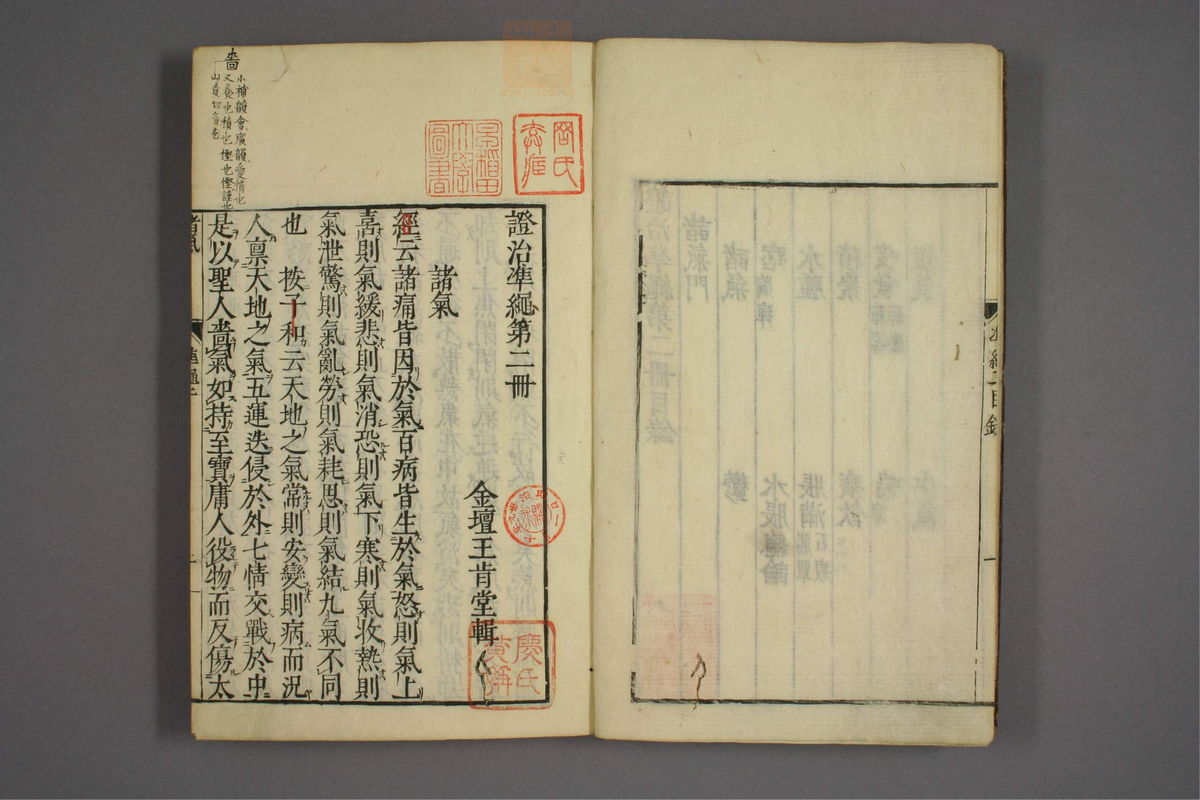 準繩二目錄
一
證治準繩第二冊
金壇王肯堂輯
諸氣
經云諸痛皆因於氣百病皆生於氣怒則氣上
喜則氣緩悲則氣消恐則氣下寒則氣收熱則
氣泄驚則氣亂勞則氣耗思則氣結九氣不同
也 按子和云天地之氣常則安變則病而況
人禀天地之氣五運迭侵於外七情交戰於中
是以聖人嗇氣如持至寶庸人役物而反傷太
諸氣
準繩二
一
嗇
小補韻會廣韻愛惜也
又貪也積也慳也慳謹也
早稻田大學圖書